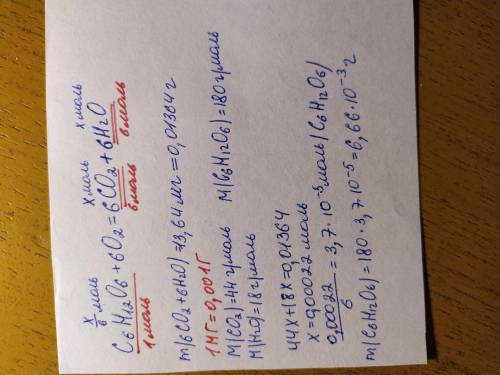 x/6 моль x моль x моль
C6H12O6 + 6O2 = 6CO2 + 6H2O
1 моль 6 моль 6 моль
m(6CO2+6H2O)=13,64 мг = 0,01364 г
1 МГ = 0,001Г
M(CO2)=44 г/моль M(C6H12O6)=180 г/моль
M(H2O)=18 г/моль
44x+18x=0,01364
x=0,00022 моль
0,00022/6 = 3,7·10⁻⁵ моль (C6H12O6)
m(C6H12O6)=180·3,7·10⁻⁵=6,66·10⁻³ г